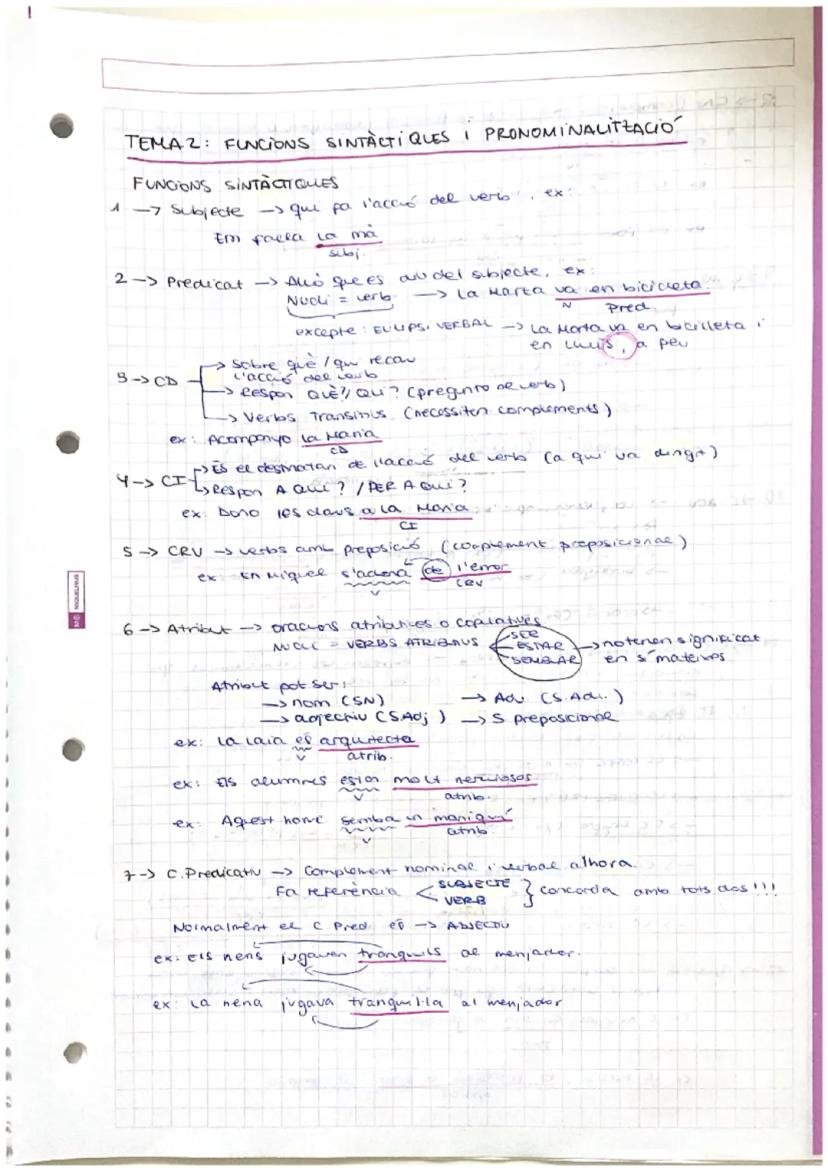 TEMA 2: FUNCIONS SINTÀCTIQUES I PRONOMINALITZACIÓ
FUNCIONS SINTÀCTIQUES
1 → Subjecte → qui fa l'acció del verb, ex:
Em falla la mà
subj.
2 → Predicat → Allò que es diu del subjecte, ex:
Nucli = verb → La Marta va en bicicleta.
N Pred.
excepte: EL·LIPSI VERBAL → La Marta va en bicicleta i
en Lluís, a peu
3 → CD → Sobre què/qui recau
l'acció del verb
→ Respon QUÈ?/QUI? (pregunto al verb)
→ Verbs Transitius (necessiten complements)
ex: Acompanyo la Maria
CD
4 → CI → És el destinatari de l'acció del verb (a qui va dirigit)
→ Respon A QUI? / PER A QUI?
ex: Dono les claus a la Maria
CI
5 → CRV → verbs amb preposició (complement preposicional)
ex: En Miquel s'adona de l'error
V CRV
6 → Atribut → oracions atributives o copulatives
NUCLI = VERBS ATRIBUTIUS SER
ESTAR → no tenen significat
SEMBLAR en sí mateixos
Atribut pot ser:
→ nom (SN) → Adv (S.Adv.)
→ adjectiu (S.Adj) → S preposicional
ex: La Laia és arquitecta
V atrib.
ex: Els alumnes estan molt nerviosos
V atrib.
ex: Aquest home sembla un maniquí
V atrib.
7 → C.Predicatiu → Complement nominal i verbal alhora.
Fa referència SUBJECTE
VERB } Concorda amb tots dos!!!
Normalment el C Pred és → ADJECTIU
ex: els nens jugaven tranquils al menjador.
ex: La nena jugava tranquil·la al menjador
MIQUELRIUS